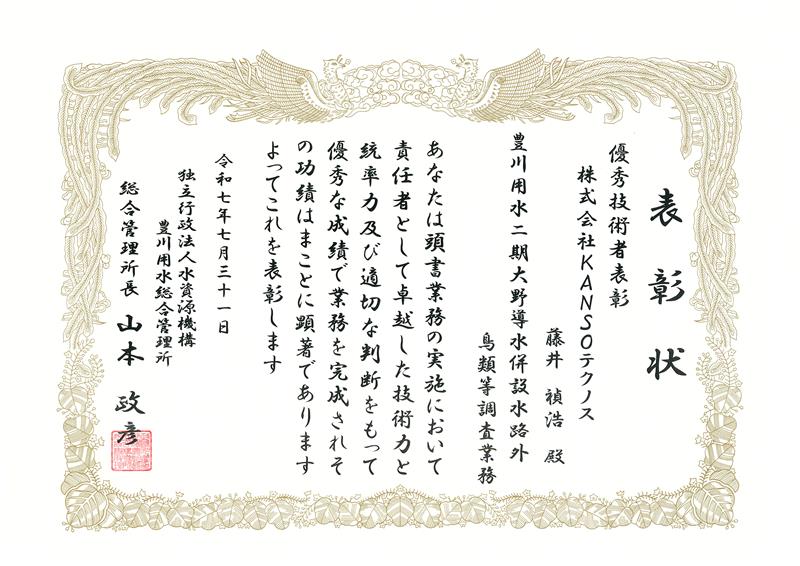 表彰状
優秀技術者表彰
株式会社KANSOテクノス
藤井 禎浩 殿
豊川用水二期大野導水併設水路外
鳥類等調査業務
あなたは頭書業務の実施において
責任者として卓越した技術力と
統率力及び適切な判断をもって
優秀な成績で業務を完成されそ
の功績はまことに顕著であります
よってこれを表彰します
令和七年七月三十一日
独立行政法人水資源機構
豊川用水総合管理所
総合管理所長 山本 政彦